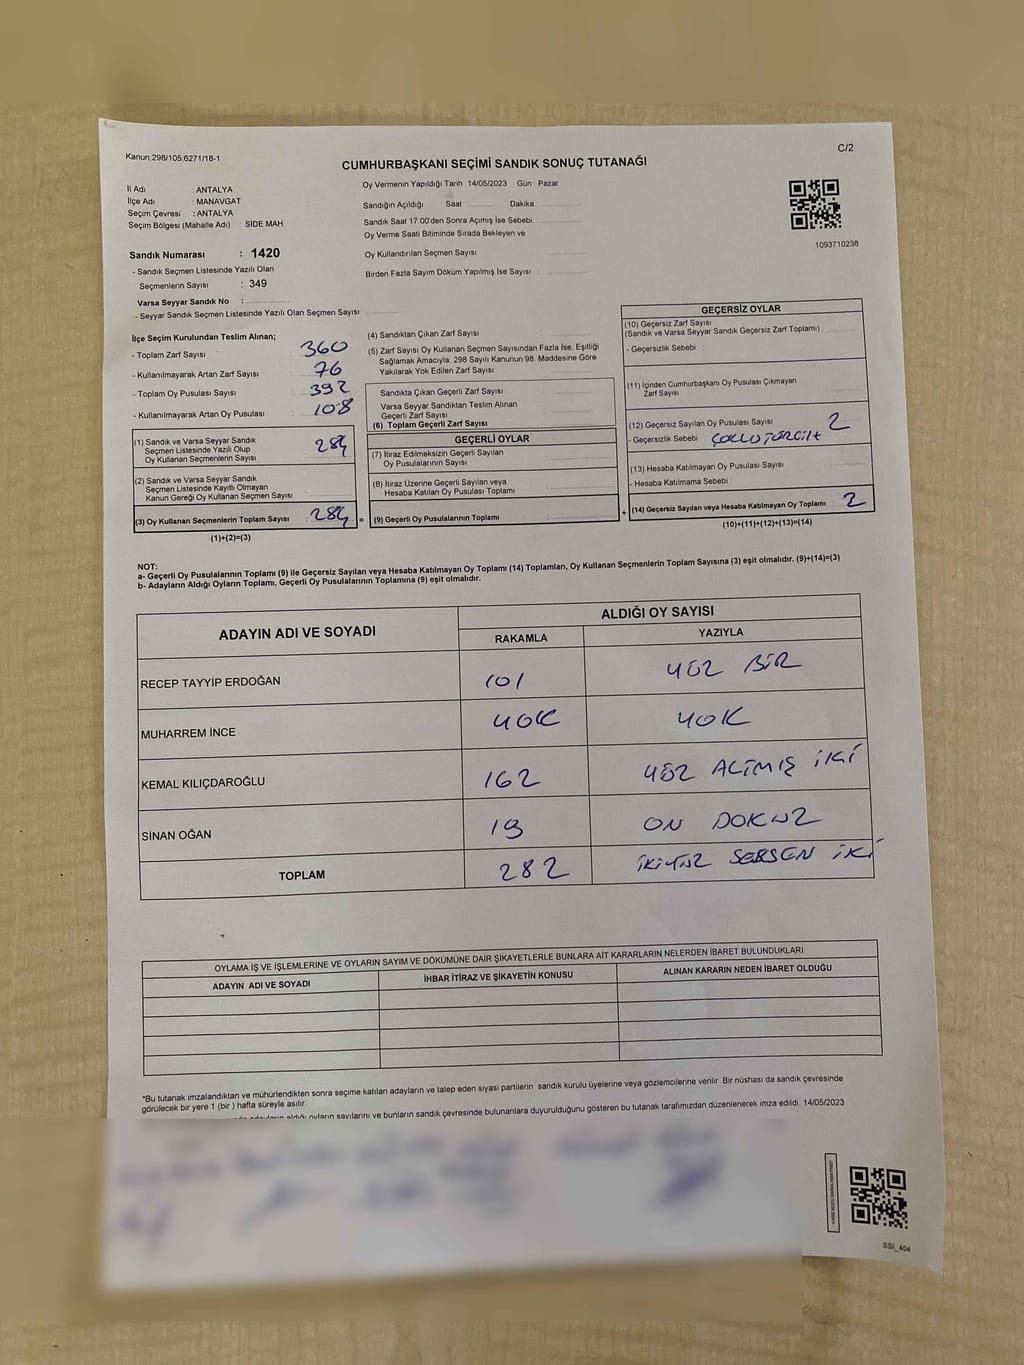 Kanun;298/105,6271/18-1
C/2
CUMHURBAŞKANI SEÇİMİ SANDIK SONUÇ TUTANAĞI
İl Adı : ANTALYA
İlçe Adı : MANAVGAT
Seçim Çevresi : ANTALYA
Seçim Bölgesi (Mahalle Adı) SİDE MAH
Oy Vermenin Yapıldığı Tarih 14/05/2023 Gün : Pazar
Sandığın Açıldığı Saat Dakika
Sandık Saat 17:00'den Sonra Açımış İse Sebebi
Oy Verme Saati Bitiminde Sırada Bekleyen ve
Oy Kullandırılan Seçmen Sayısı
Birden Fazla Sayım Döküm Yapılmış İse Sayısı
1093710238
Sandık Numarası : 1420
- Sandık Seçmen Listesinde Yazılı Olan
Seçmenlerin Sayısı : 349
Varsa Seyyar Sandık No :
- Seyyar Sandık Seçmen Listesinde Yazılı Olan Seçmen Sayısı
İlçe Seçim Kurulundan Teslim Alınan;
- Toplam Zarf Sayısı : 360
- Kullanılmayarak Artan Zarf Sayısı : 76
- Toplam Oy Pusulası Sayısı : 392
- Kullanılmayarak Artan Oy Pusulası : 108
(1) Sandık ve Varsa Seyyar Sandık
Seçmen Listesinde Yazılı Olup
Oy Kullanan Seçmenlerin Sayısı : 284
(2) Sandık ve Varsa Seyyar Sandık
Seçmen Listesinde Kayıtlı Olmayan
Kanun Gereği Oy Kullanan Seçmen Sayısı
(3) Oy Kullanan Seçmenlerin Toplam Sayısı : 284 =
(1)+(2)=(3)
(4) Sandıktan Çıkan Zarf Sayısı
(5) Zarf Sayısı Oy Kullanan Seçmen Sayısından Fazla İse, Eşitliği
Sağlamak Amacıyla; 298 Sayılı Kanunun 98. Maddesine Göre
Yakılarak Yok Edilen Zarf Sayısı
Sandıkta Çıkan Geçerli Zarf Sayısı
Varsa Seyyar Sandıktan Teslim Alınan
Geçerli Zarf Sayısı
(6) Toplam Geçerli Zarf Sayısı
GEÇERLİ OYLAR
(7) İtiraz Edilmeksizin Geçerli Sayılan
Oy Pusulalarının Sayısı
(8) İtiraz Üzerine Geçerli Sayılan veya
Hesaba Katılan Oy Pusulası Toplamı
(9) Geçerli Oy Pusulalarının Toplamı : +
GEÇERSİZ OYLAR
(10) Geçersiz Zarf Sayısı
(Sandık ve Varsa Seyyar Sandık Geçersiz Zarf Toplamı)
- Geçersizlik Sebebi
(11) İçinden Cumhurbaşkanı Oy Pusulası Çıkmayan
Zarf Sayısı
(12) Geçersiz Sayılan Oy Pusulası Sayısı 2
- Geçersizlik Sebebi
(13) Hesaba Katılmayan Oy Pusulası Sayısı
- Hesaba Katılmama Sebebi
(14) Geçersiz Sayılan veya Hesaba Katılmayan Oy Toplamı 2
(10)+(11)+(12)+(13)=(14)
NOT:
a- Geçerli Oy Pusulalarının Toplamı (9) ile Geçersiz Sayılan veya Hesaba Katılmayan Oy Toplamı (14) Toplamları, Oy Kullanan Seçmenlerin Toplam Sayısına (3) eşit olmalıdır. (9)+(14)=(3)
b- Adayların Aldığı Oyların Toplamı, Geçerli Oy Pusulalarının Toplamına (9) eşit olmalıdır.
ADAYIN ADI VE SOYADI
ALDIĞI OY SAYISI
RAKAMLA YAZIYLA
RECEP TAYYİP ERDOĞAN 101 YÜZ BİR
MUHARREM İNCE YOK YOK
KEMAL KILIÇDAROĞLU 162 YÜZ ALTMIŞ İKİ
SİNAN OĞAN 19 ON DOKUZ
TOPLAM 282 İKİYÜZ SEKSEN İKİ
OYLAMA İŞ VE İŞLEMLERİNE VE OYLARIN SAYIM VE DÖKÜMÜNE DAİR ŞİKAYETLERLE BUNLARA AİT KARARLARIN NELERDEN İBARET BULUNDUKLARI
ADAYIN ADI VE SOYADI İHBAR İTİRAZ VE ŞİKAYETİN KONUSU ALINAN KARARIN NEDEN İBARET OLDUĞU
*Bu tutanak imzalandıktan ve mühürlendikten sonra seçime katılan adayların ve talep eden siyasi partilerin sandık kurulu üyelerine veya gözlemcilerine verilir. Bir nüshası da sandık çevresinde
görülecek bir yere 1 (bir ) hafta süreyle asılır.
adayların aldığı oyların sayılarını ve bunların sandık çevresinde bulunanlara duyurulduğunu gösteren bu tutanak tarafımızdan düzenlenerek imza edildi. 14/05/2023
SSİ_404